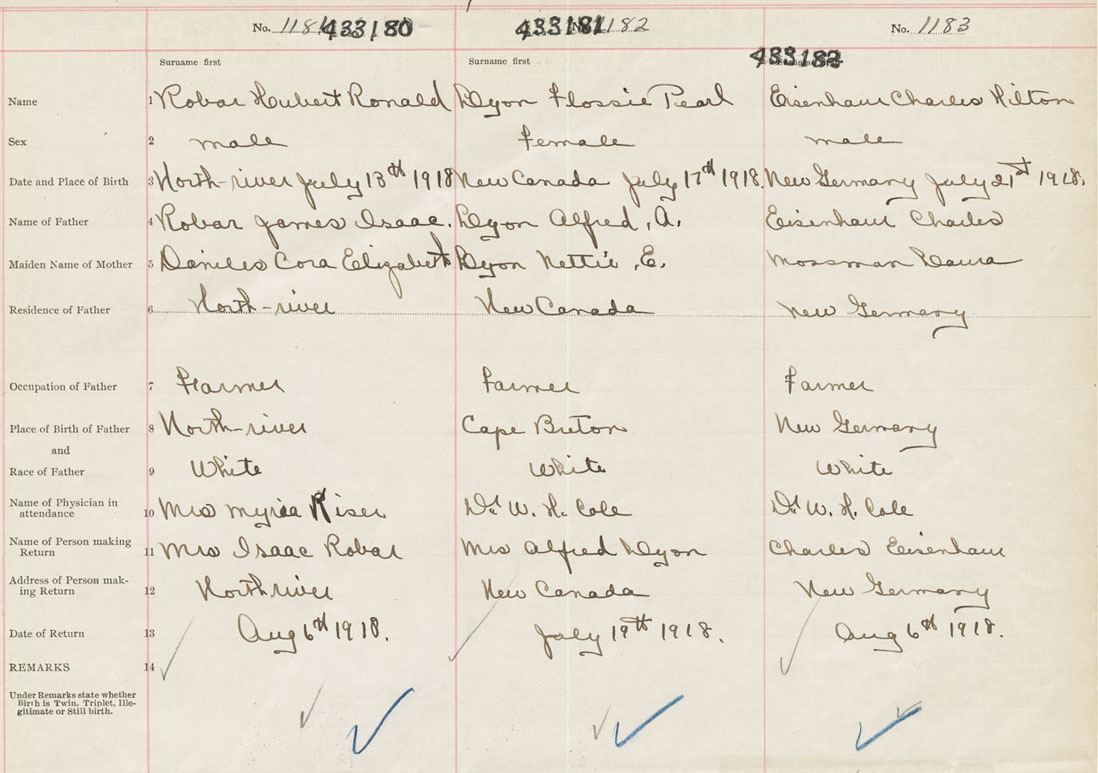 No. 1181 433180 433181 No. 1182 No. 1183
Surname first Surname first 433182
Name 1 Robar Hubert Ronald Dyon Flossie Pearl Eisenhaur Charles Hilton
Sex 2 male Female male
Date and Place of Birth 3 North-river July 13th 1918 New Canada July 17th 1918. New Germany July 21st 1918.
Name of Father 4 Robar James Isaac. Dyon Alfred, A. Eisenhaur Charles
Maiden Name of Mother 5 Daniels Cora Elizabeth Dyon Nettie, E. Mossman Laura
Residence of Father 6 North-river New Canada New Germany
Occupation of Father 7 Farmer Farmer Farmer
Place of Birth of Father 8 North-river Cape Breton New Germany
and
Race of Father 9 White White White
Name of Physician in
attendance 10 Mrs Riser Dr. W. H. Cole Dr. W. H. Cole
Name of Person making
Return 11 Mrs Isaac Robar Mrs Alfred Dyon Charles Eisenhaur
Address of Person mak-
ing Return 12 North river New Canada New Germany
Date of Return 13 Aug 6th 1918. July 19th 1918. Aug 6th 1918.
REMARKS 14
Under Remarks state whether
Birth is Twin, Triplet, Ille-
gitimate or Still birth.